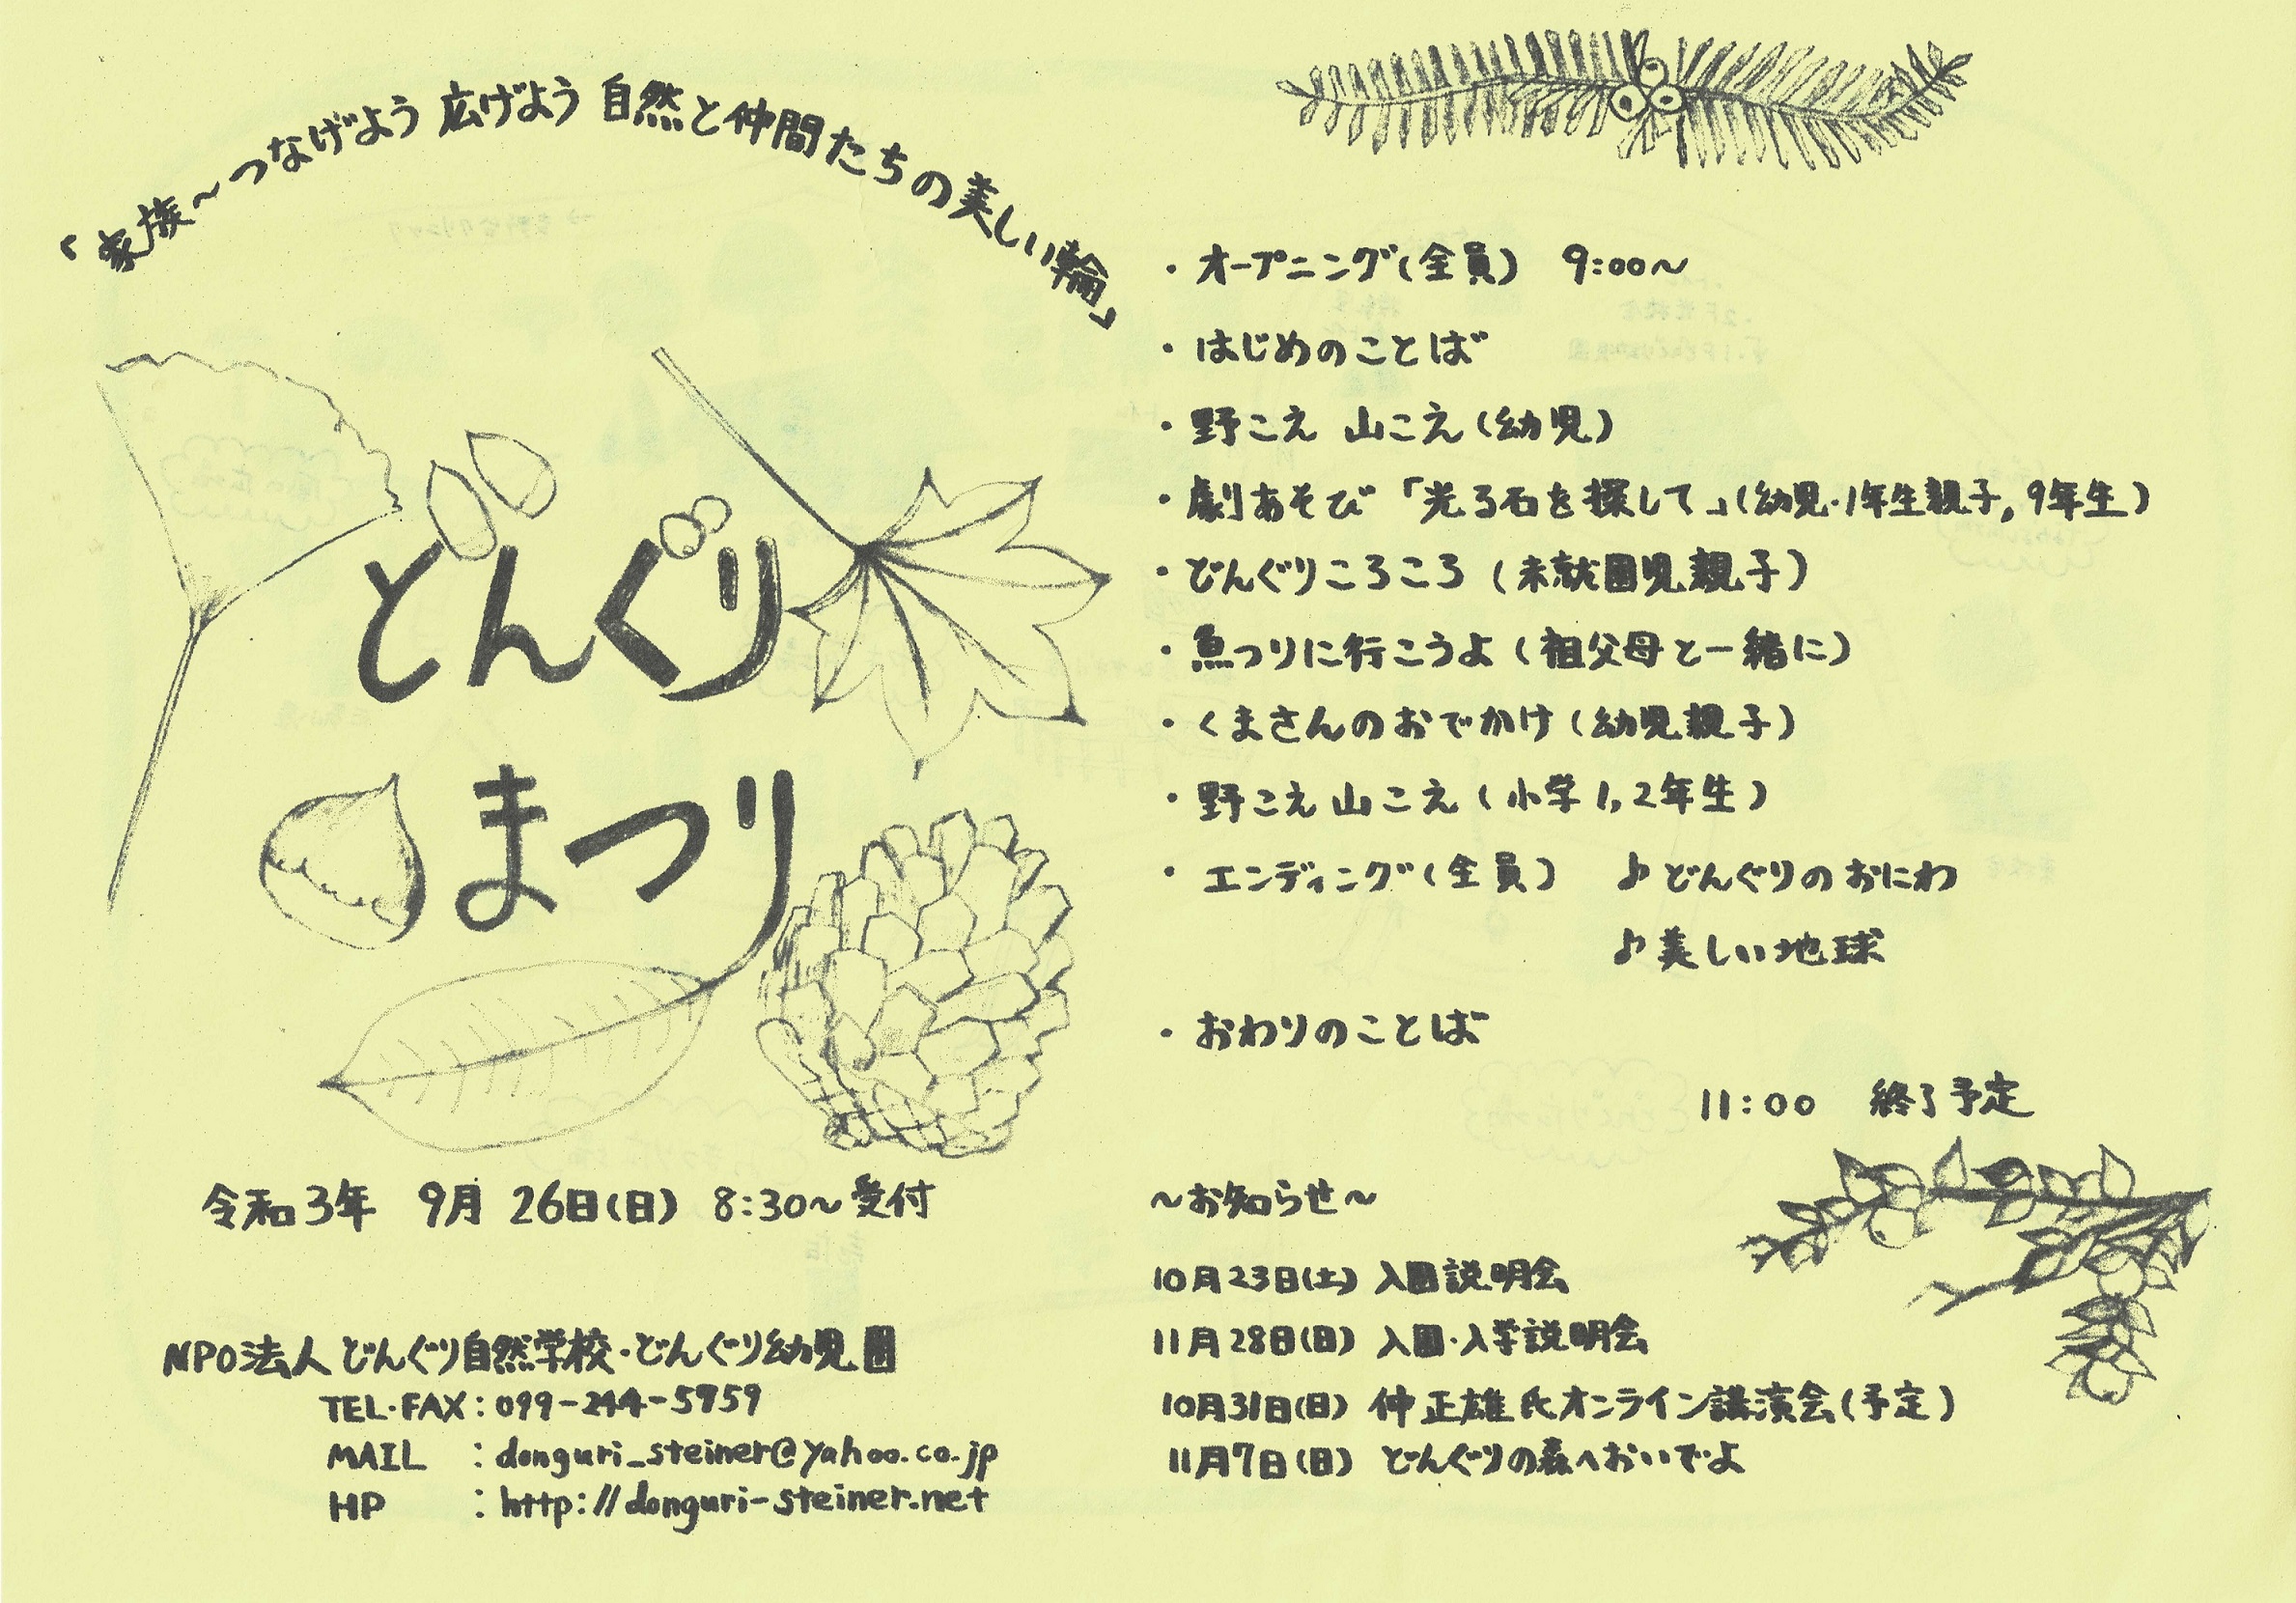 「家族～つなげよう 広げよう 自然と仲間たちの美しい輪」
どんぐり
まつり
令和3年 9月 26日(日) 8:30～受付
NPO法人どんぐり自然学校・どんぐり幼児園
TEL・FAX:099-244-5959
MAIL :donguri_steiner@yahoo.co.jp
HP :http://donguri-steiner.net
・オープニング(全員) 9:00～
・はじめのことば
・野こえ 山こえ(幼児)
・劇あそび「光る石を探して」(幼児・1年生親子, 9年生)
・どんぐりころころ(未就園児親子)
・魚つりに行こうよ(祖父母と一緒に)
・くまさんのおでかけ(幼児親子)
・野こえ山こえ(小学1,2年生)
・エンディング(全員) ♪どんぐりのおにわ
♪美しい地球
・おわりのことば
11:00 終了予定
～お知らせ～
10月23日(土) 入園説明会
11月28日(日) 入園・入学説明会
10月31日(日) 仲正雄氏オンライン講演会(予定)
11月7日(日) どんぐりの森へおいでよ